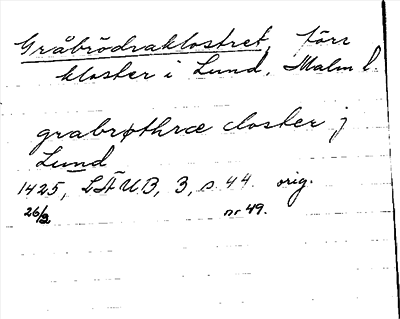 Gråbrödraklostret, förr
kloster i Lund, Malm l.
grabrøthræ closter j
Lund
1425, LÄUB, 3, s. 44. orig.
26/2 nr 49.